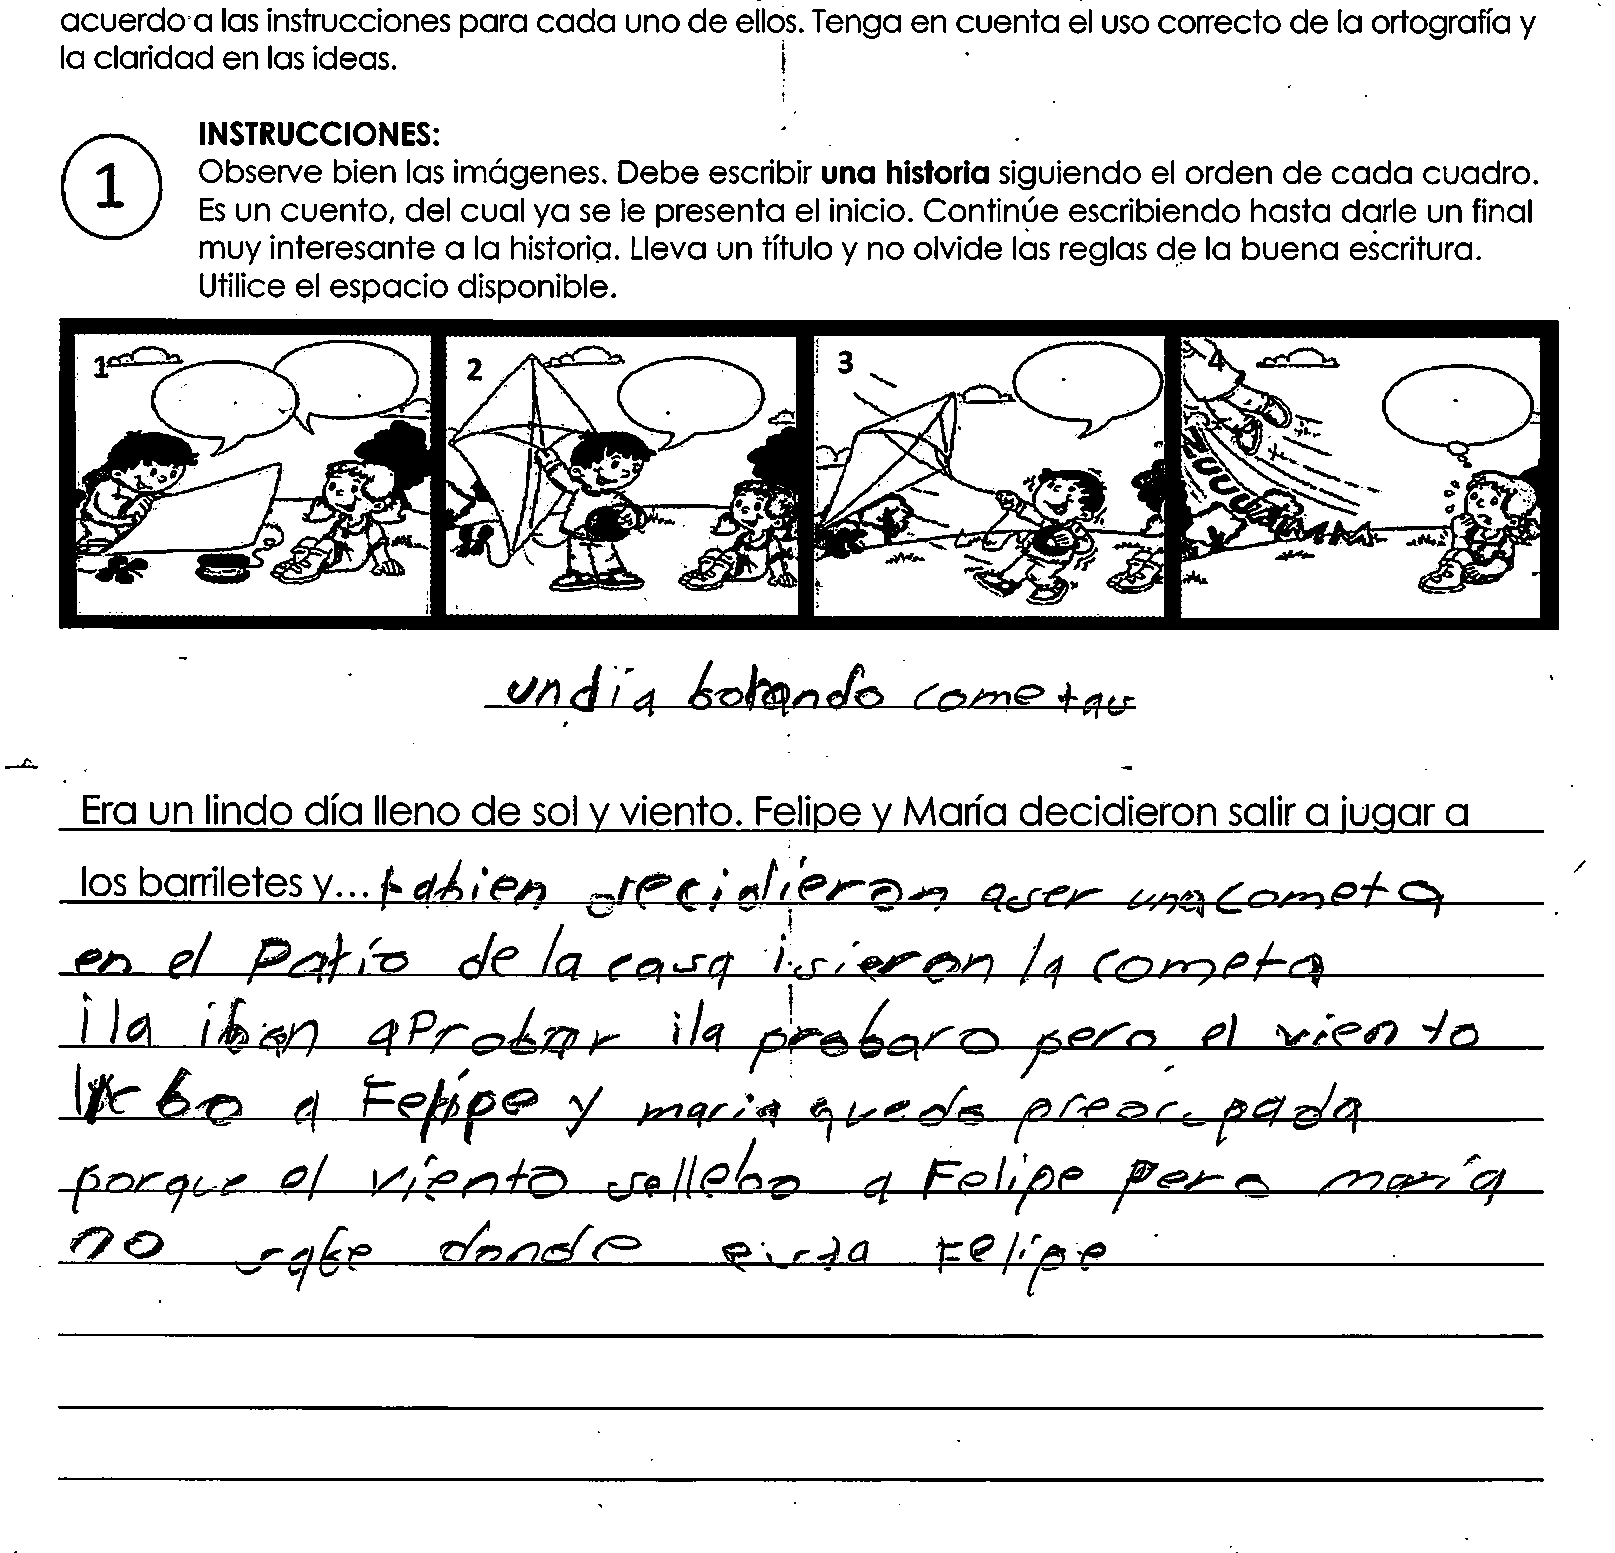 acuerdo a las instrucciones para cada uno de ellos. Tenga en cuenta el uso correcto de la ortografía y
la claridad en las ideas.
INSTRUCCIONES:
1
Observe bien las imágenes. Debe escribir una historia siguiendo el orden de cada cuadro.
Es un cuento, del cual ya se le presenta el inicio. Continúe escribiendo hasta darle un final
muy interesante a la historia. Lleva un título y no olvide las reglas de la buena escritura.
Utilice el espacio disponible.
1 2 3 4
ZUUUUM
un dia bolando cometas
Era un lindo día lleno de sol y viento. Felipe y María decidieron salir a jugar a
los barriletes y... tabien decidieron aser una cometa
en el patio de la casa isieron la cometa
i la iban aprobar i la probaro pero el viento
llebo a Felipe y maria quedo preocupada
porque el viento sellebo a Felipe pero maría
no sabe donde esta Felipe